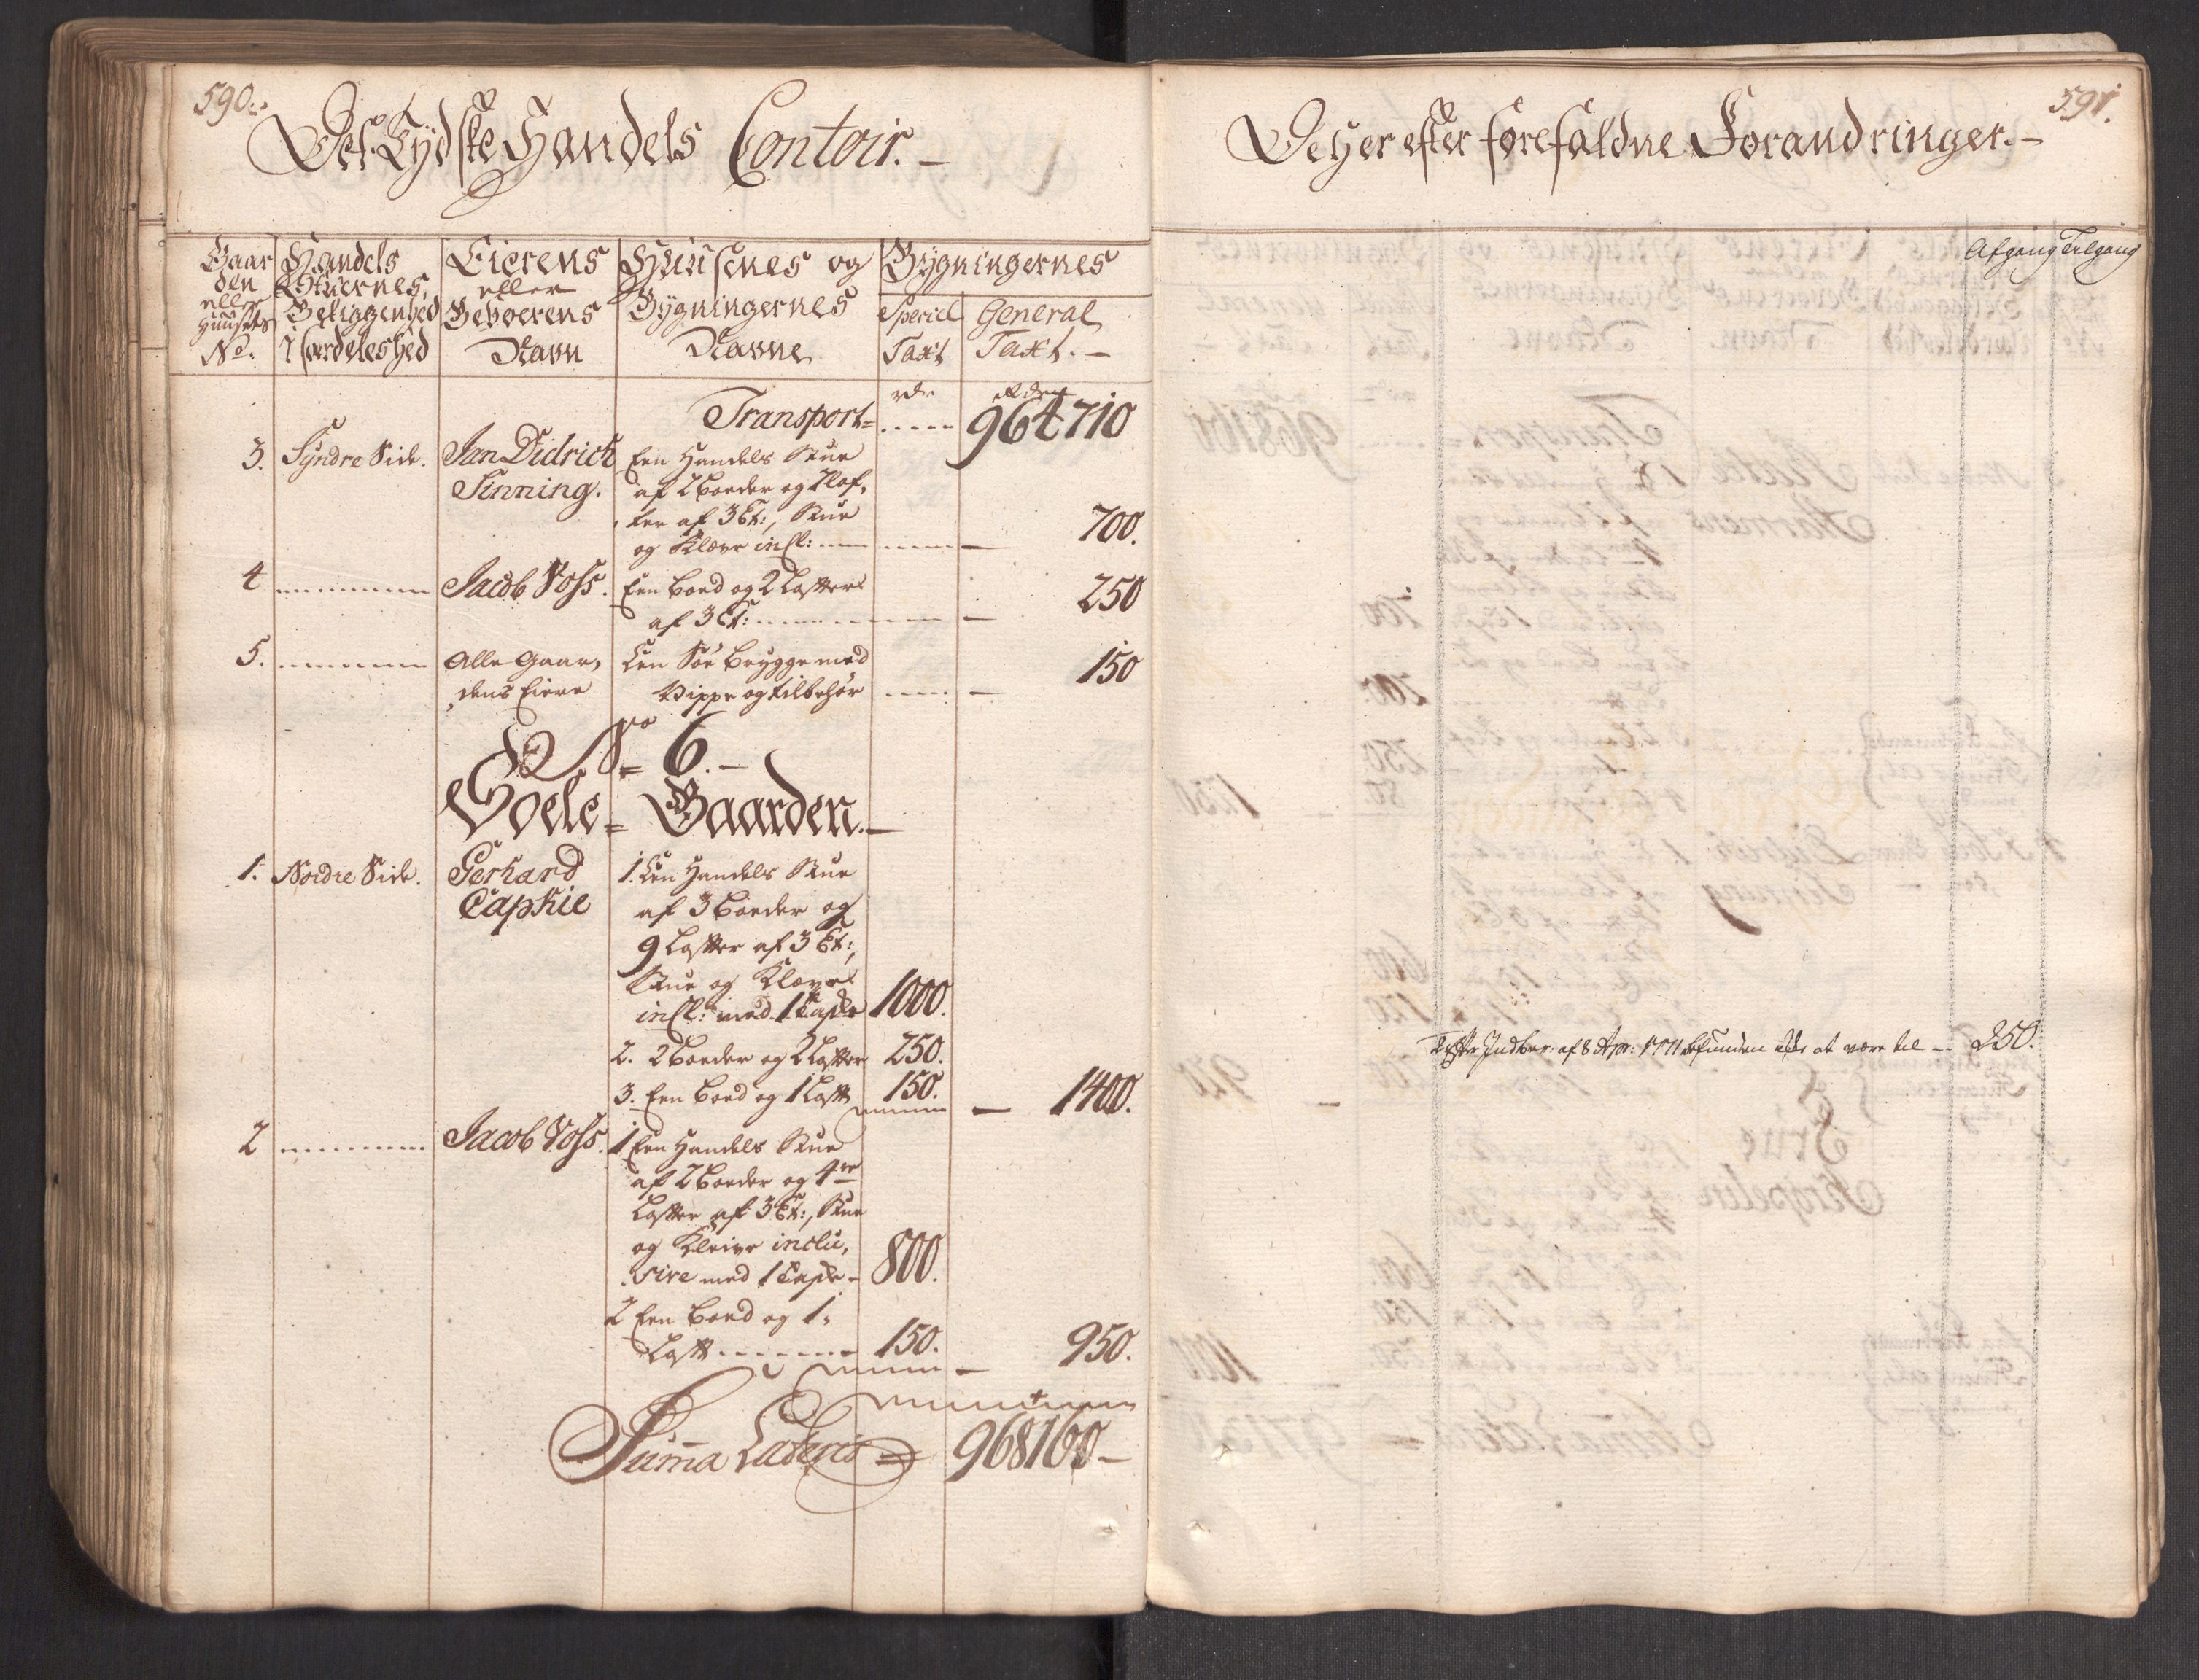 590.
Det Tydske Handels Contoir.
Gaar
den
eller
Huusets
No.
Handels
Stuernes
Beliggenhed
i særdeleshed
Eierens
eller
Beboerens
Navn
Huusenes og
Bygningernes
Navne
Bygningernes
Special
Taxt
General
Taxt.
rdr
Rdr
Transport = ..... 964710
3. Syndre Side. Jan Didrich Een Handels Stue
Tinning. af 2 Boeder og 7 Lof,
ter af 3 Et:, Stue
og Kleve incl: 700.
4 Jacob Voss. Een Boed og 2 Lofter
af 3 Et: 250
5. Alle Gaar, Een Søe Brygge med
dens Eiere Vippe og tilbehør 150
No 6.
Soele = Gaarden.
1. Nordre Side. Gerhard 1. Een Handels Stue
Capkie af 3 Boeder og
9 Lofter af 3 Et:,
Stue og Kleve
incl: med 1 1000.
2. 2 Boeder og 2 Lofter 250.
3. Een Boed og 1 Loft 150. 1400.
2 Jacob Voss. 1 Een Handels Stue
af 2 Boeder og 4re
Lofter af 3 Et:, Stue
og Kleive inclu,
sive med 1 800.
2 Een Boed og 1.
Loft 150. 950.
Summa Lateris = 968160
591.
De Her efter forefaldne Forandringer.
Afgang Tilgang
2 Efter Indber: af 8 Apr: 1771 befunden ikke at være til 250.